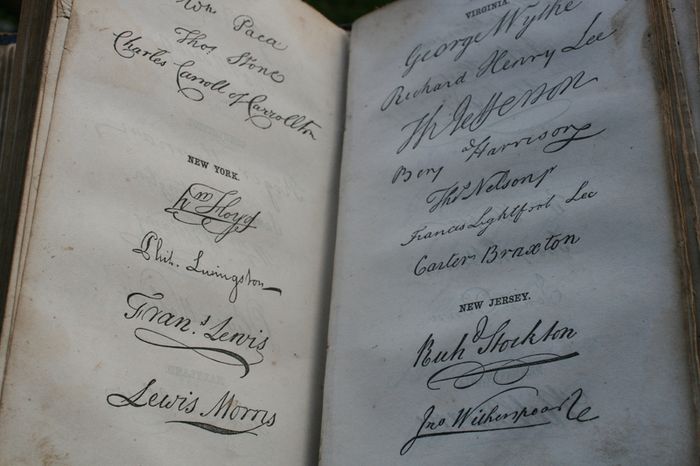 Wm Paca
Thos Stone
Charles Carroll of Carrollton
NEW YORK.
Wm Floyd
Phil. Livingston
Fran.s Lewis
Lewis Morris
VIRGINIA
George Wythe
Richard Henry Lee
Th Jefferson
Benj Harrison
Thos Nelson jr
Francis Lightfoot Lee
Carter Braxton
NEW JERSEY.
Richd Stockton
Jno Witherspoon